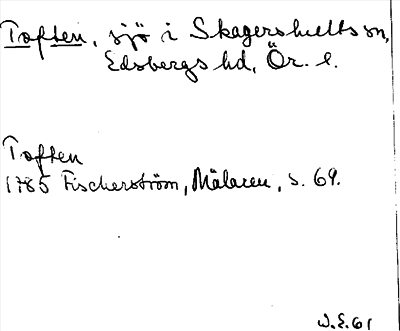 Toften, sjö i Skagershults sn,
Edsbergs hd, Ör. l.
Toften
1785 Fischerström, Mälaren, s. 69.
W.E. 61